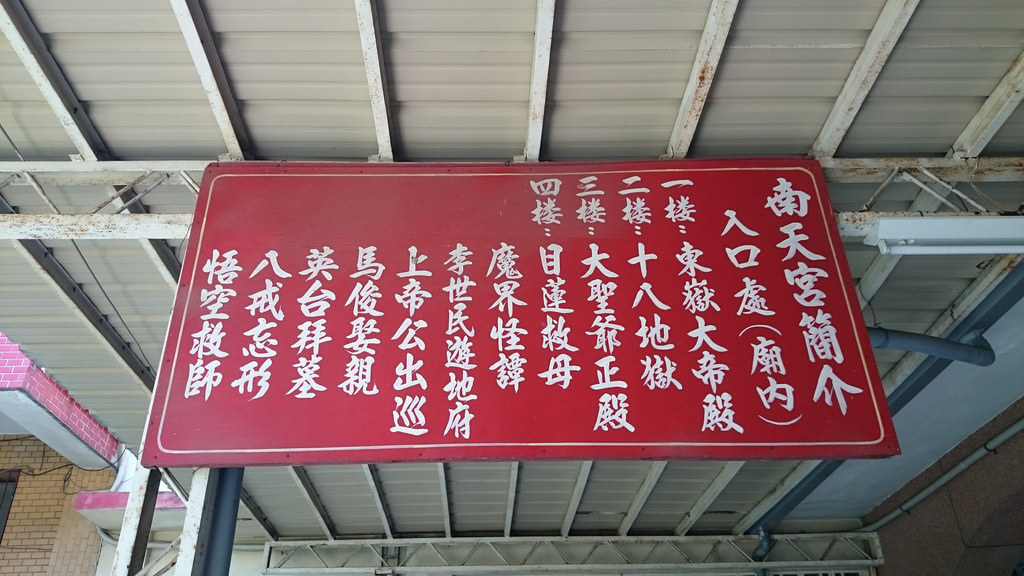 南天宮簡介
入口處（廟內）
一楼：東嶽大帝殿
二楼：十八地獄
三楼：大聖爺正殿
四楼：目蓮救母
魔界怪譚
李世民遊地府
上帝公出巡
馬俊娶親
英台拜墓
八戒忘形
悟空救師